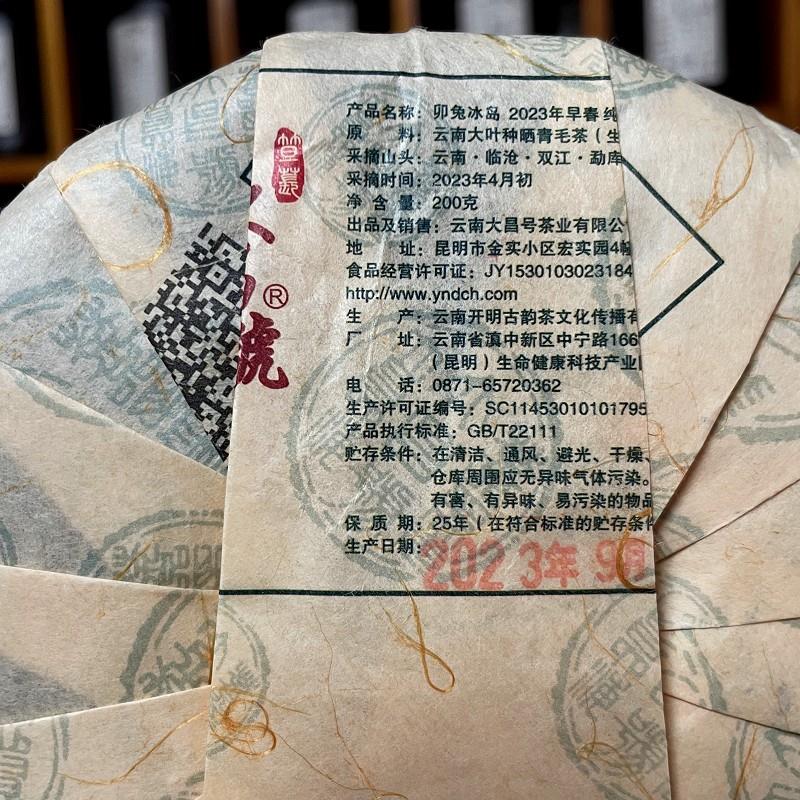 产品名称：卯兔冰岛 2023年早春 纯
原 料：云南大叶种晒青毛茶（生
采摘山头：云南·临沧·双江·勐库
采摘时间：2023年4月初
净 含 量：200克
出品及销售：云南大昌号茶业有限公
地 址：昆明市金实小区宏实园4幢
食品经营许可证：JY1530103023184
http://www.yndch.com
生 产：云南开明古韵茶文化传播有
厂 址：云南省滇中新区中宁路166
（昆明）生命健康科技产业园
电 话：0871-65720362
生产许可证编号：SC11453010101795
产品执行标准：GB/T22111
贮存条件：在清洁、通风、避光、干燥、
仓库周围应无异味气体污染。
有害、有异味、易污染的物品
保 质 期：25年（在符合标准的贮存条件
生产日期：2023年9月
號®